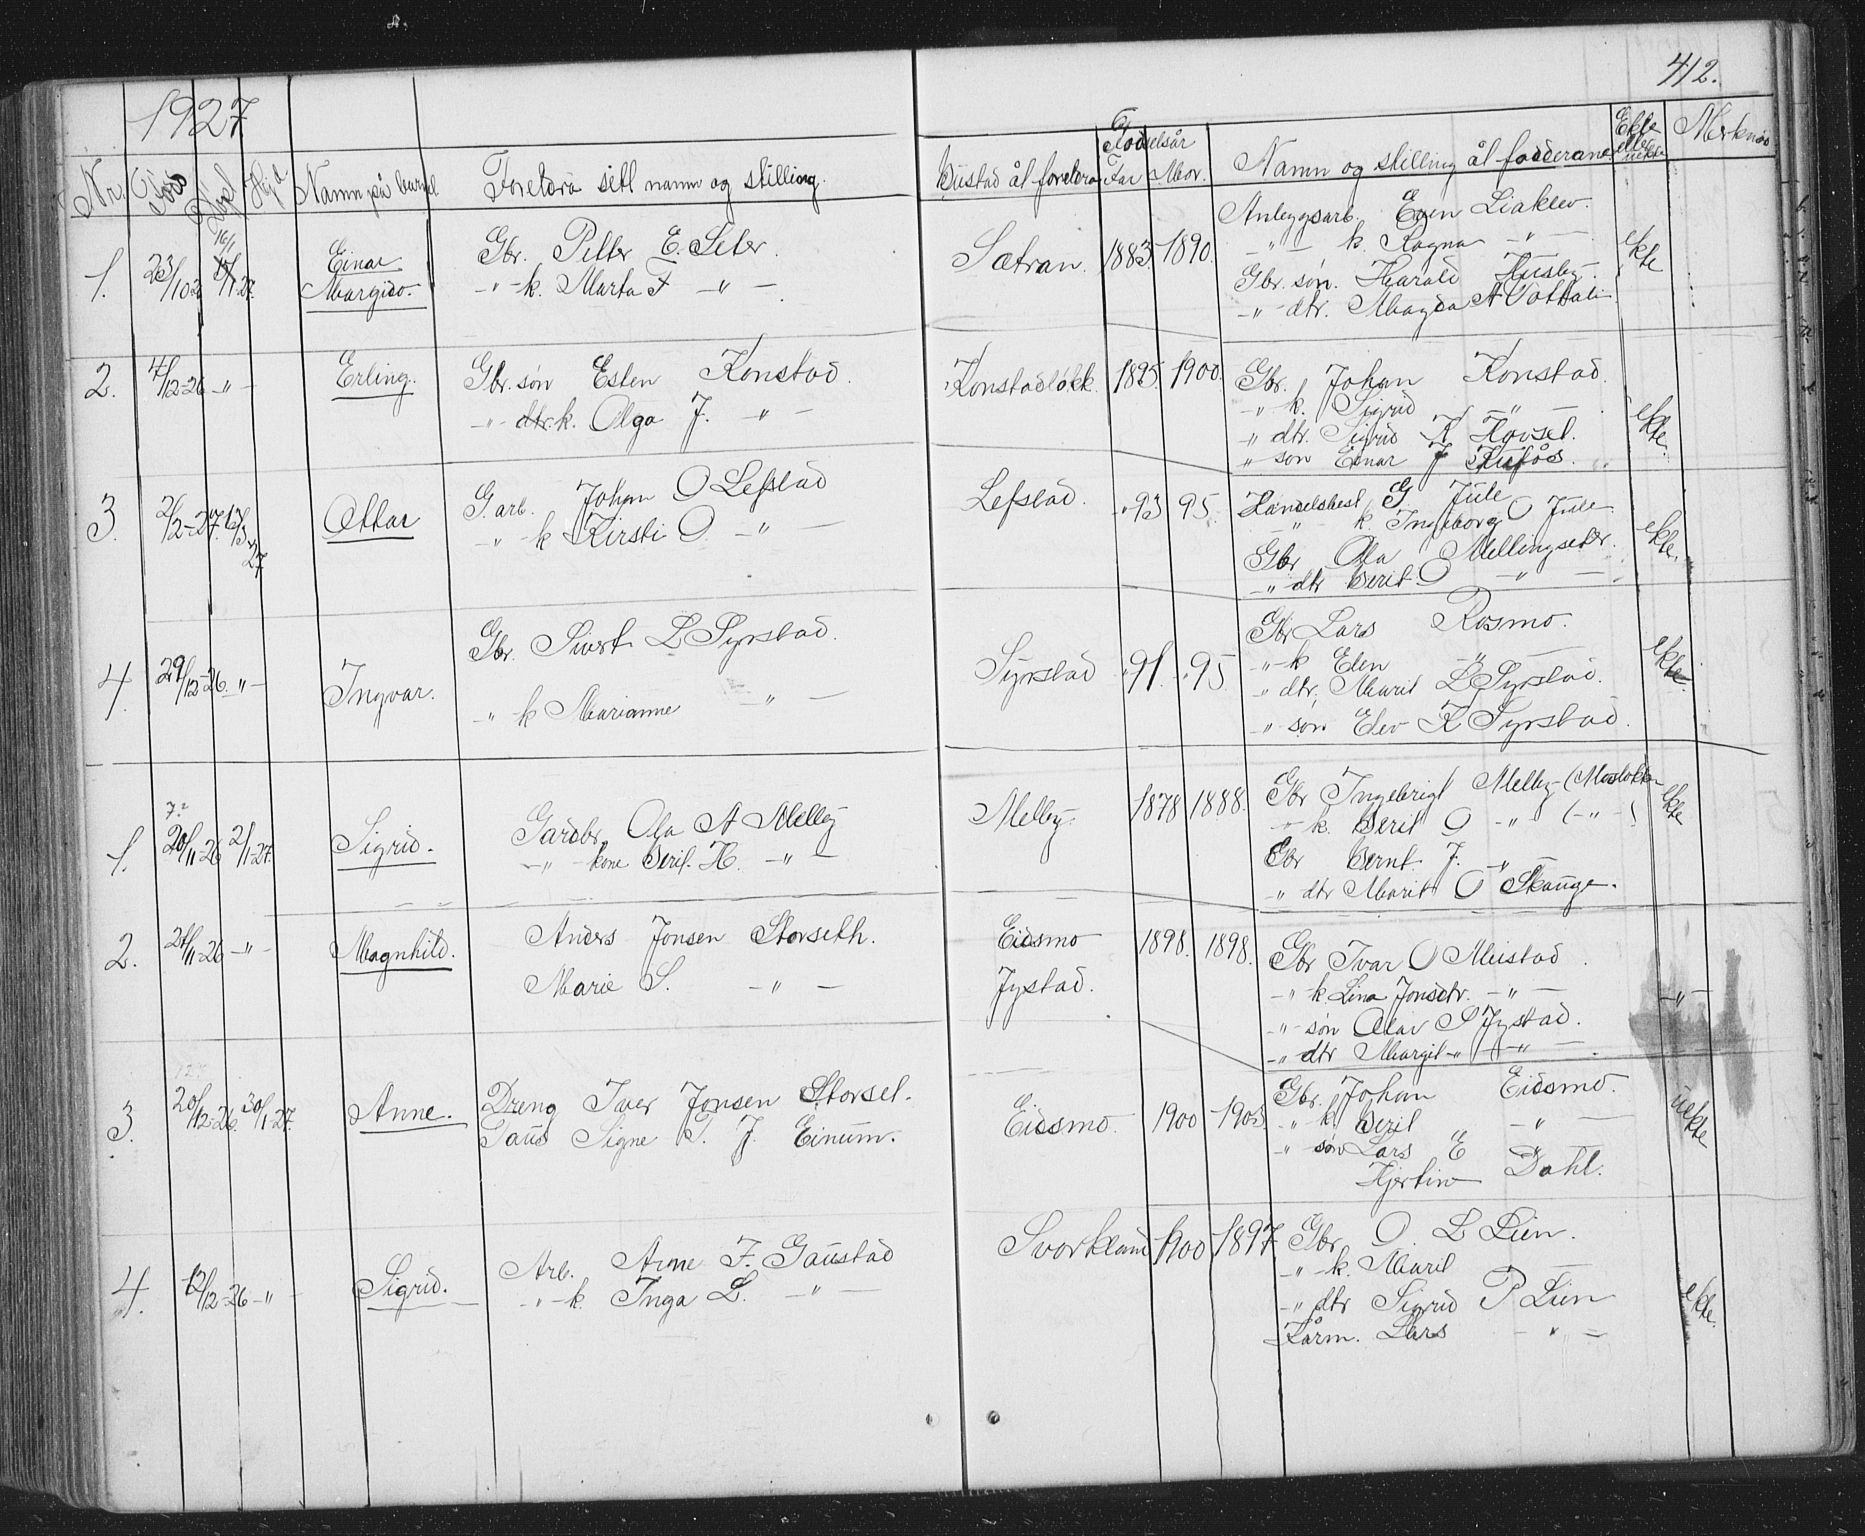 412.
1927
Nr. Født Døpt Hjd. Namn på barnet Foreldra sitt namn og stilling. Bustad åt foreldra Fødselsår Far Mor. Namn og stilling åt fadderane Ekte eller uekte Merknad
1. 23/10 26 16/1 27. Einar Margido. Gbr. Petter E. Seter. Sætran. 1883. 1890. Anleggsarb. Even Liaklev. ekte
-"- k. Marta F -"- -"- k. Ragna -"-
Gbr. søn. Harald Husby.
-"- dtr. Magda A Vottali
2. 4/12-26 -"- Erling. Gbr. søn Esten Konstad. Konstadløkk. 1895. 1900. Gbr. Johan Konstad. ekte.
-"- dtr. k. Olga J. -"- -"- k. Sigrid -"-
-"- dtr. Sigrid K Hovsel.
" søn Einar J Kufås.
3. 2/2-27. 13/3 27 Ottar G. arb. Johan O Lefstad Lefstad. -"93 95. Handelsbest G Jule ekte.
-"- k Kirsti O. -"- -"- k. Ingeborg O Jule
Gbr Ola O Mellingseter.
-"- dtr Berit O -"-
4. 29/12-26. -"- Ingvar. Gbr. Sivert L Syrstad. Syrstad -"91. -"95. Gbr Lars Rosmo. ekte.
-"- k Marianne -"- -"- k Elen -"-
-"- dtr. Marit L Syrstad.
-"- søn Elev K Syrstad.
1. 7? 20/11-26 2/1-27. Sigrid. Gardbr. Ola A Melby Melby. 1878 1888. Gbr Ingebrigt Melby (Mosløkken ekte
-"- kone Berit H. -"- -"- k. Berit O -"- (-"-)
Gbr Bernt J. -"-
-"- dtr Marit O Skauge.
2. 21/11-26 -"- Magnhild. Anders Jonsen Storseth. Eidsmo 1898. 1898. Gbr Ivar O Meistad -"-
Marie S. -"- Jystad. -"- k Lina Jonsdtr. -"-
-"- søn Olav S Jystad.
-"- dtr Margit -"- -"-
3. 20/12-26. 30/1-27. Anne. Dreng Iver Jonsen Storset. Eidsmo. 1900 1905 Gbr. Johan Eidsmo. uekte
Taus Signe T. J. Einum. -"- k. Berit -"-
-"- søn Lars E -"-
Hjertine Dahl.
4. 12/12-26 -"- Sigrid. Arb. Arne F. Gaustad Svorkland 1900 1897 Gbr O. L Lien. ekte.
-"- k. Inga L. -"- -"- k. Marit
-"- dtr Sigrid P Lien
Kårm. Lars -"-